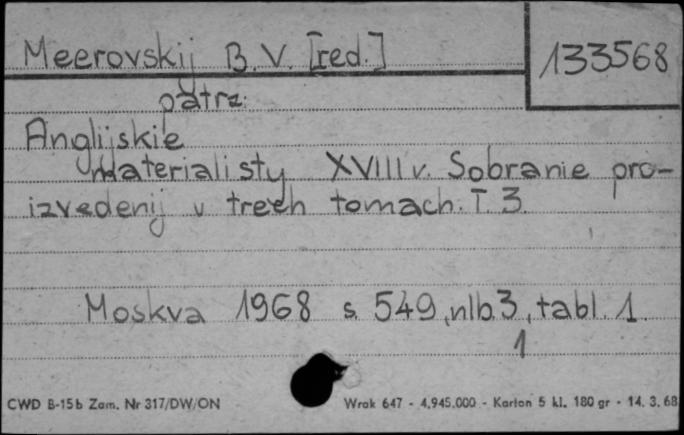 Meerovskij B. V. [red.] 133568
patrz:
Anglijskie
Materialisty XVIII v. Sobranie pro-
izvedenij v trech tomach. T. 3.
Moskva 1968 s. 549, nlb. 3, tabl. 1.
1
CWD B-15b Zam. Nr 317/DW/ON Wrak 647 - 4.945.000 - Karton 5 kl. 180 gr - 14. 3. 68